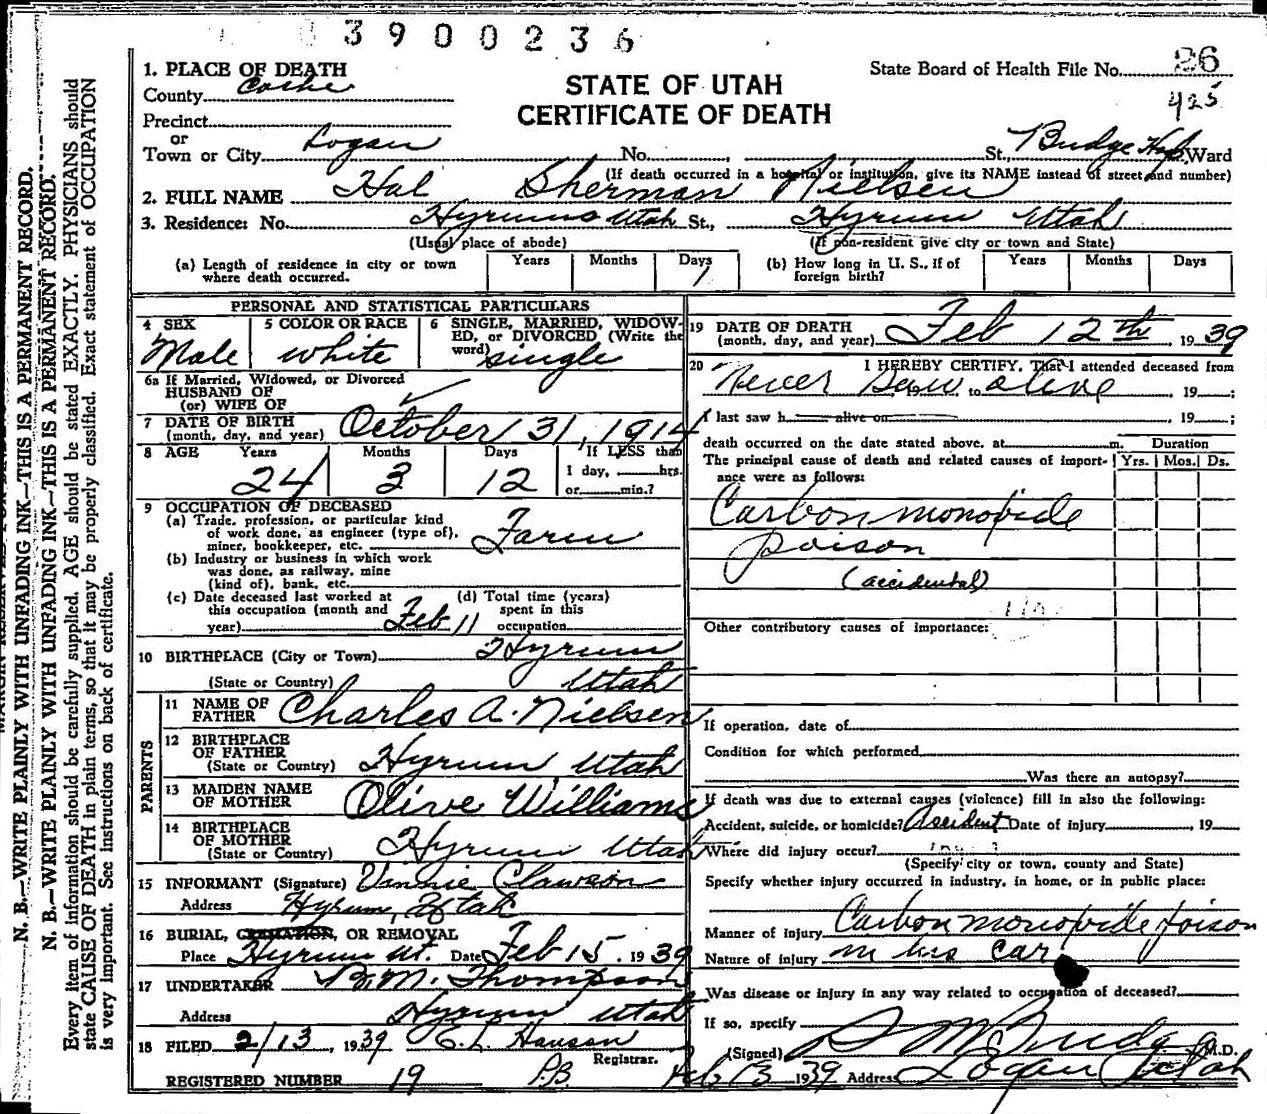 3900236
1. PLACE OF DEATH
County Cache
STATE OF UTAH
CERTIFICATE OF DEATH
State Board of Health File No. 26
425
Precinct
or
Town or City Logan No. , St., Budge Hosp Ward
(If death occurred in a hospital or institution, give its NAME instead of street and number)
2. FULL NAME Hal Sherman Nielsen
3. Residence: No. Hyrum Utah St., Hyrum Utah
(Usual place of abode) (If non-resident give city or town and State)
(a) Length of residence in city or town where death occurred. Years Months Days 1
(b) How long in U. S., if of foreign birth? Years Months Days
PERSONAL AND STATISTICAL PARTICULARS
4 SEX Male
5 COLOR OR RACE white
6 SINGLE, MARRIED, WIDOWED, or DIVORCED (Write the word) single
6a If Married, Widowed, or Divorced
HUSBAND OF
(or) WIFE OF
7 DATE OF BIRTH
(month, day, and year) October 31, 1914
8 AGE Years 24 Months 3 Days 12 If LESS than
1 day, hrs.
or min.?
9 OCCUPATION OF DECEASED
(a) Trade, profession, or particular kind
of work done, as engineer (type of),
miner, bookkeeper, etc. Farm
(b) Industry or business in which work
was done, as railway, mine
(kind of), bank, etc.
(c) Date deceased last worked at
this occupation (month and
year) Feb 11
(d) Total time (years)
spent in this
occupation
10 BIRTHPLACE (City or Town) Hyrum
(State or Country) Utah
PARENTS
11 NAME OF
FATHER Charles A. Nielsen
12 BIRTHPLACE
OF FATHER
(State or Country) Hyrum Utah
13 MAIDEN NAME
OF MOTHER Olive Williams
14 BIRTHPLACE
OF MOTHER
(State or Country) Hyrum Utah
15 INFORMANT (Signature) Vinnie Clawson
Address Hyrum, Utah
16 BURIAL, CREMATION, OR REMOVAL
Place Hyrum Ut. Date Feb 15, 1939
17 UNDERTAKER B. M. Thompson
Address Hyrum Utah
18 FILED 2/13, 1939 C. L. Hanson
Registrar.
REGISTERED NUMBER 19 P.B.
19 DATE OF DEATH
(month, day, and year) Feb 12th, 1939
20 I HEREBY CERTIFY, That I attended deceased from
Never Saw, to alive, 19 ;
I last saw h alive on , 19 ;
death occurred on the date stated above, at m.
Duration
The principal cause of death and related causes of importance were as follows: Yrs. Mos. Ds.
Carbon monoxide
poison
(accidental)
Other contributory causes of importance:
If operation, date of
Condition for which performed
Was there an autopsy?
If death was due to external causes (violence) fill in also the following:
Accident, suicide, or homicide? Accident Date of injury , 19
Where did injury occur?
(Specify city or town, county and State)
Specify whether injury occurred in industry, in home, or in public place:
Manner of injury Carbon monoxide poison
Nature of injury in his car
Was disease or injury in any way related to occupation of deceased?
If so, specify
(Signed) S M Budge M.D.
Feb 13 1939 Address Logan Utah
N. B.—WRITE PLAINLY WITH UNFADING INK—THIS IS A PERMANENT RECORD.
N. B.—WRITE PLAINLY WITH UNFADING INK—THIS IS A PERMANENT RECORD.
Every item of information should be carefully supplied. AGE should be stated EXACTLY. PHYSICIANS should
state CAUSE OF DEATH in plain terms, so that it may be properly classified. Exact statement of OCCUPATION
is very important. See instructions on back of certificate.